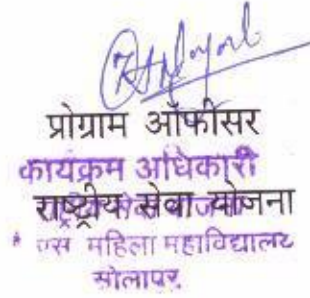 प्रोग्राम ऑफीसर
कार्यक्रम अधिकारी
राष्ट्रीय सेवा योजना
महिला महाविद्यालय
सोलापूर.